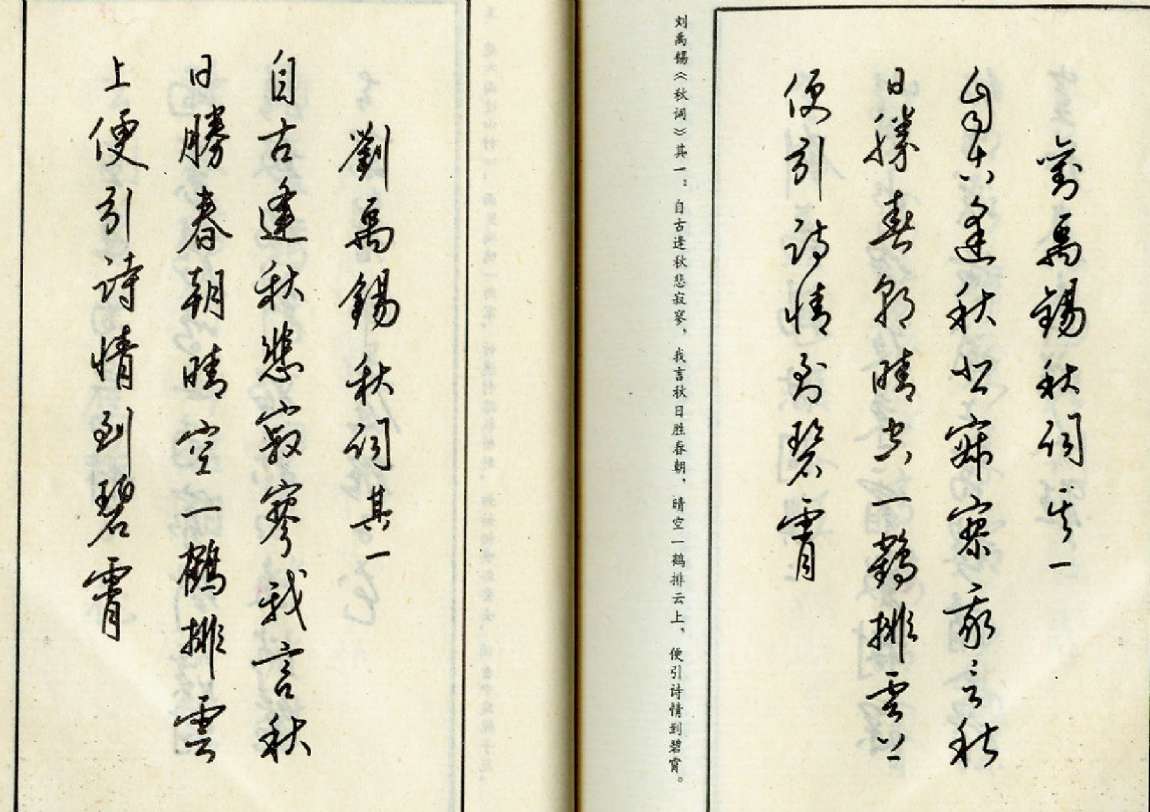 劉禹錫秋詞其一
自古逢秋悲寂寥我言秋
日勝春朝晴空一鶴排雲上
便引詩情到碧霄
刘禹锡《秋词》其一：自古逢秋悲寂寥，我言秋日胜春朝，晴空一鹤排云上，便引诗情到碧霄。
劉禹錫秋詞其一
自古逢秋悲寂寥我言秋
日勝春朝晴空一鶴排雲
上便引詩情到碧霄